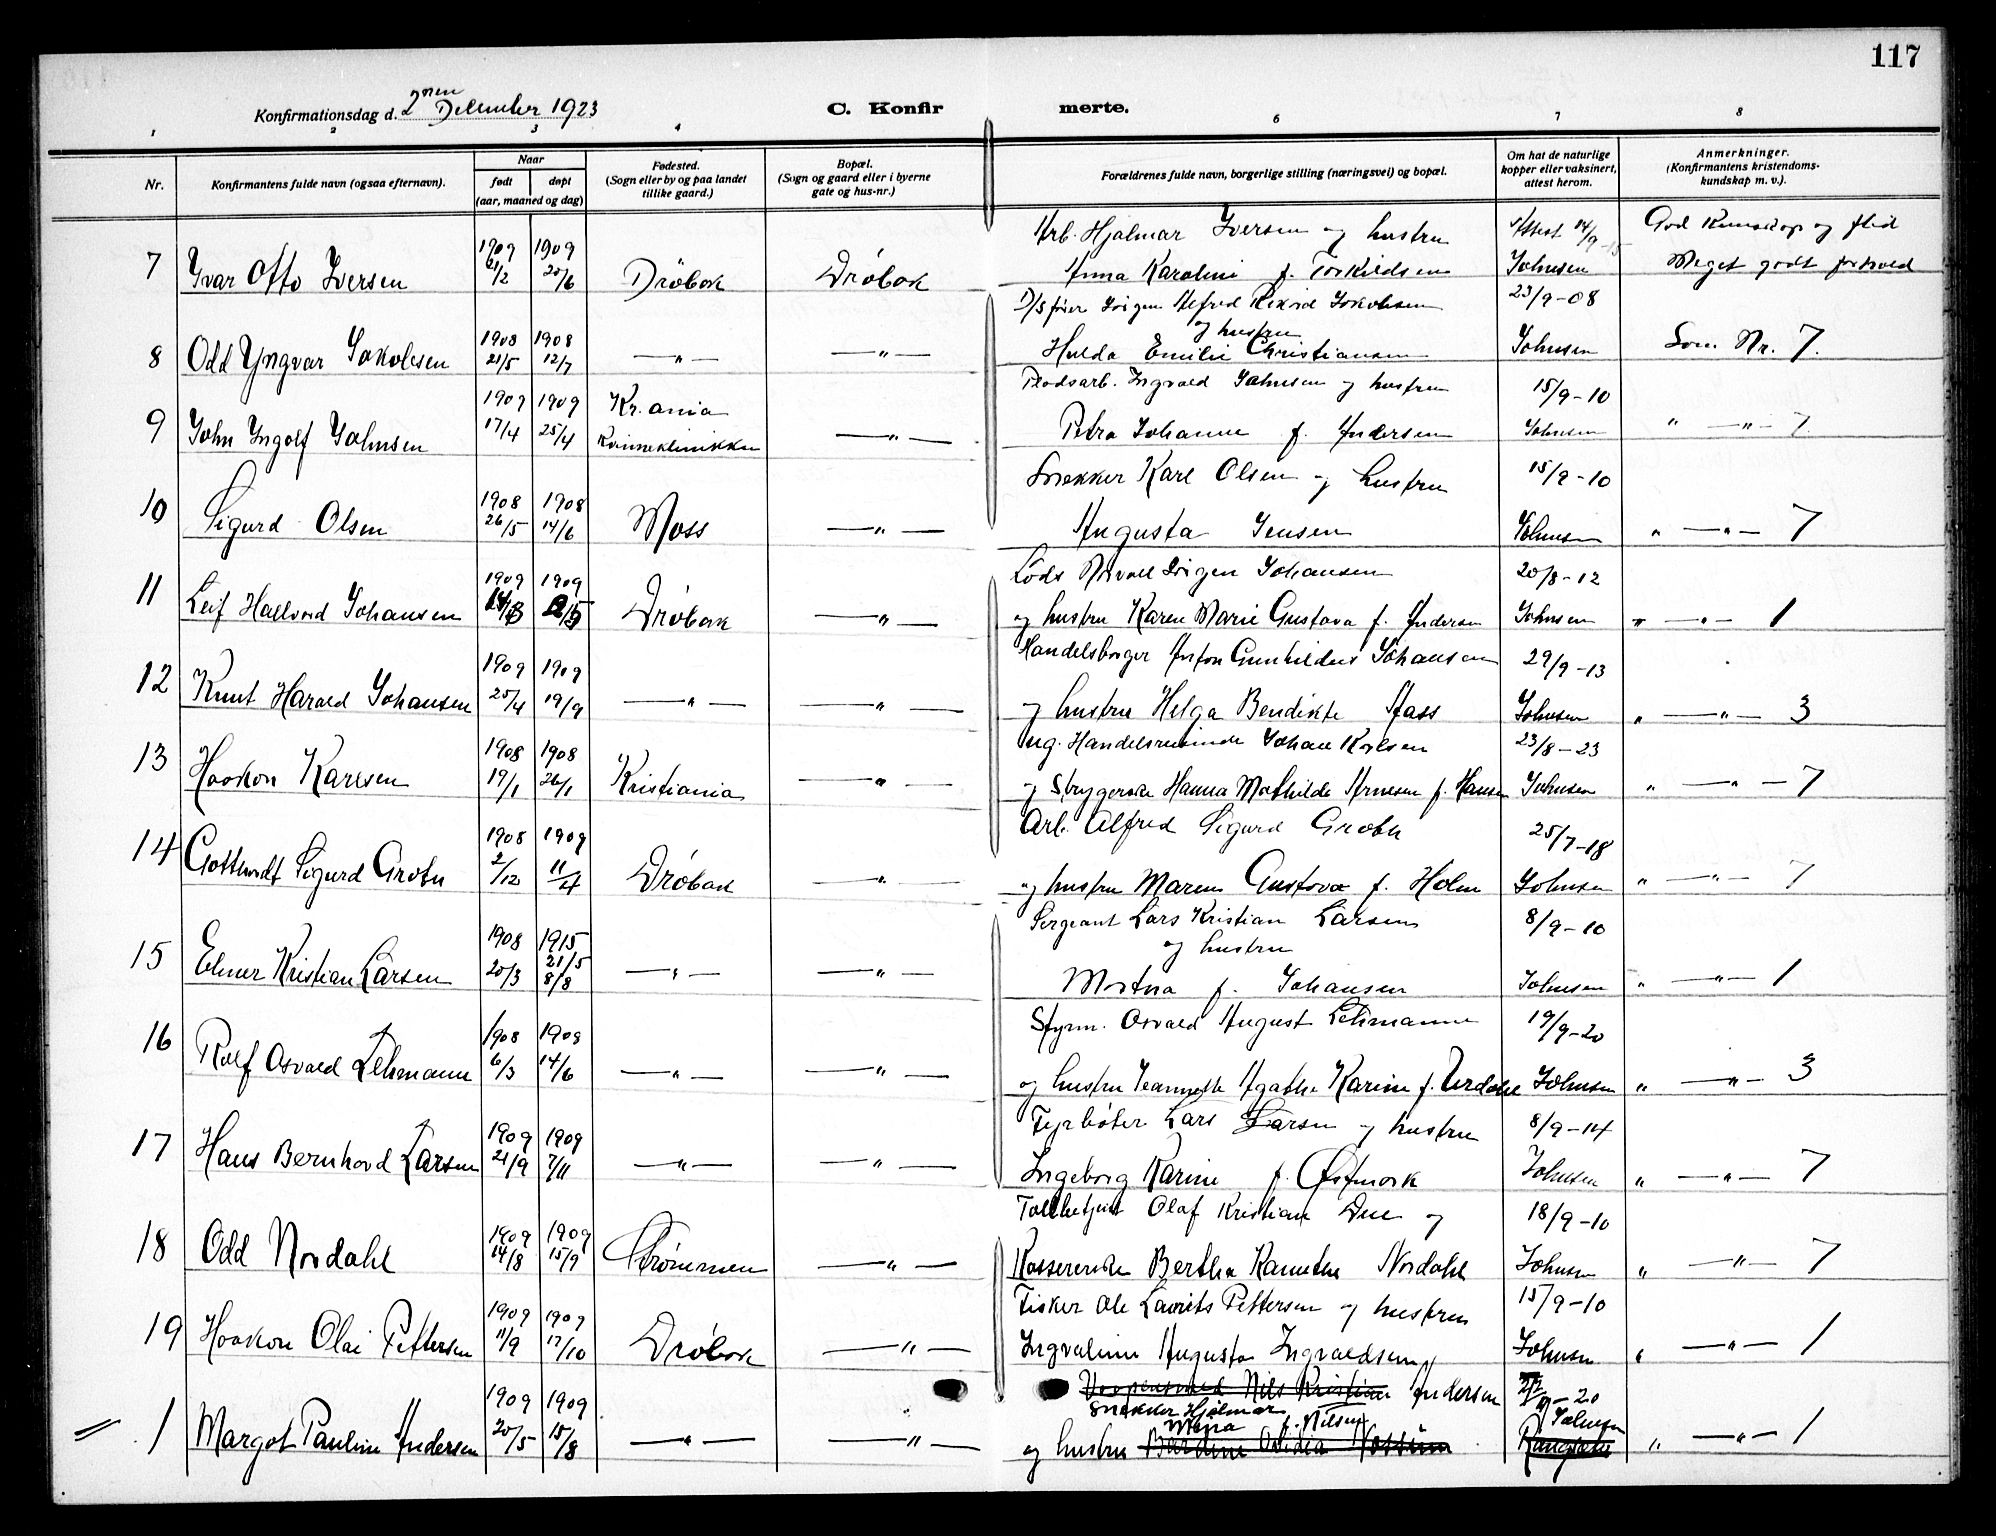 117
Konfirmationsdag d. 2nen December 1923
C. Konfirmerte.
1 2 3 4 6 7 8
Nr. Konfirmantens fulde navn (ogsaa efternavn). Naar født døpt (aar, maaned og dag) Fødested. (Sogn eller by og paa landet tillike gaard.) Bopæl. (Sogn og gaard eller i byerne gate og hus-nr.) Forældrenes fulde navn, borgerlige stilling (næringsvei) og bopæl. Om hat de naturlige kopper eller vaksinert, attest herom. Anmerkninger. (Konfirmantens kristendomskundskap m. v.).
Arb. Hjalmar Iversen og hustru Attest 14/9-15 God Kunnskap og flid
7 Ivar Otto Iversen 1909 21/2 1909 20/6 Drøbak Drøbak Anna Karoline f. Torkildsen Johnsen Meget godt forhold
D/S fører Jørgen Alfred Rikard Jakobsen 23/9-08
og hustru
8 Odd Yngvar Jakobsen 1908 21/5 1908 12/7 —„— —„— Hulda Emilie Christiansen Johnsen Som Nr. 7.
Pladsarb. Ingvald Johnsen og hustru 15/9-10
9 John Ingolf Johnsen 1909 17/4 1909 25/4 Kr.ania Kvinneklinikken —„— Petra Johanne f. Andersen Johnsen „ —„— 7
Snekker Karl Olsen og hustru 15/9-10
10 Sigurd Olsen 1908 26/5 1908 14/6 Moss —„— Augusta Jensen Johnsen „ —„— 7
Lods Norvall Jørgen Johansen 20/8-12
11 Leif Hallvord Johansen 1909 1909 Drøbak —„— og hustru Karen Marie Gustava f. Andersen Johnsen „ —„— 1
Handelsborger Anton Gunhildus Johansen 29/9-13
12 Knut Harald Johansen 1909 25/4 1909 19/9 —„— —„— og hustru Helga Bendikte Aass Johnsen „ —„— 3
ug. Handelsreisende Johan Karlsen 23/8-23
13 Haakon Karlsen 1908 19/1 1908 26/1 Kristiania —„— og Strygerske Hanna Mathilde Arnesen f. Hansen Johnsen „ —„— 7
Arb. Alfred Sigurd Grobn 25/7-18
14 Gottlundt Sigurd Grobn 1908 2/12 1909 11/4 Drøbak —„— og hustru Maren Gustova f. Holm Johnsen „ —„— 7
Sergeant Lars Kristian Larsen 8/9-10
og hustru
15 Elmer Kristian Larsen 1908 20/3 1915 21/5 8/8 —„— —„— f. Johansen Johnsen „ —„— 1
Styrm. Osvald August Lehmann 19/9-20
16 Rolf Osvald Lehmann 1908 6/3 1908 14/6 —„— —„— og hustru Jeannette Agathe Karine f. Urdahl Johnsen „ —„— 3
Fyrbøter Lars Larsen og hustru 8/9-14
17 Hans Bernhard Larsen 1909 21/9 1909 7/11 —„— —„— Ingeborg Karine f. Østmork Johnsen „ —„— 7
Tollbetjent Olaf Kristian Due og 18/9-10
18 Odd Nordahl 1909 14/8 1909 15/9 Strømmen —„— Kassererske Bertha Kamethe Nordahl Johnsen „ —„— 7
Fisker Ole Lavrits Pettersen og hustru 15/9-10
19 Haakon Olai Pettersen 1909 11/9 1909 17/10 Drøbak —„— Ingvaline Augusta Ingvaldsen Johnsen „ —„— 1
Nils Kristian Andersen 20
Snekker Hjalmar Johnsen
f. Nilsen
1 Margot Pauline Andersen 1909 20/5 1909 15/8 —„— —„— og hustru „ —„— 1